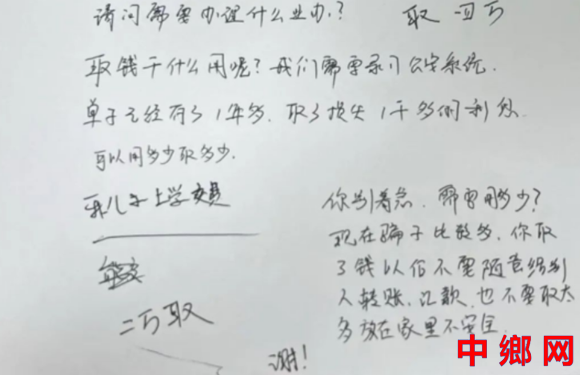 请问需要办理什么业办？
取 四万
取钱干什么用呢？我们需要录门公安系统.
单子已经有了1年多，取了损失1千多的利息
可以用多少取多少.
我儿子上学
你别着急，需要用多少？
现在骗子比较多，你取
了钱以后不要随意给别
人转账，汇款，也不要取太
多放在家里不安全.
二万取
谢！
中鄉网